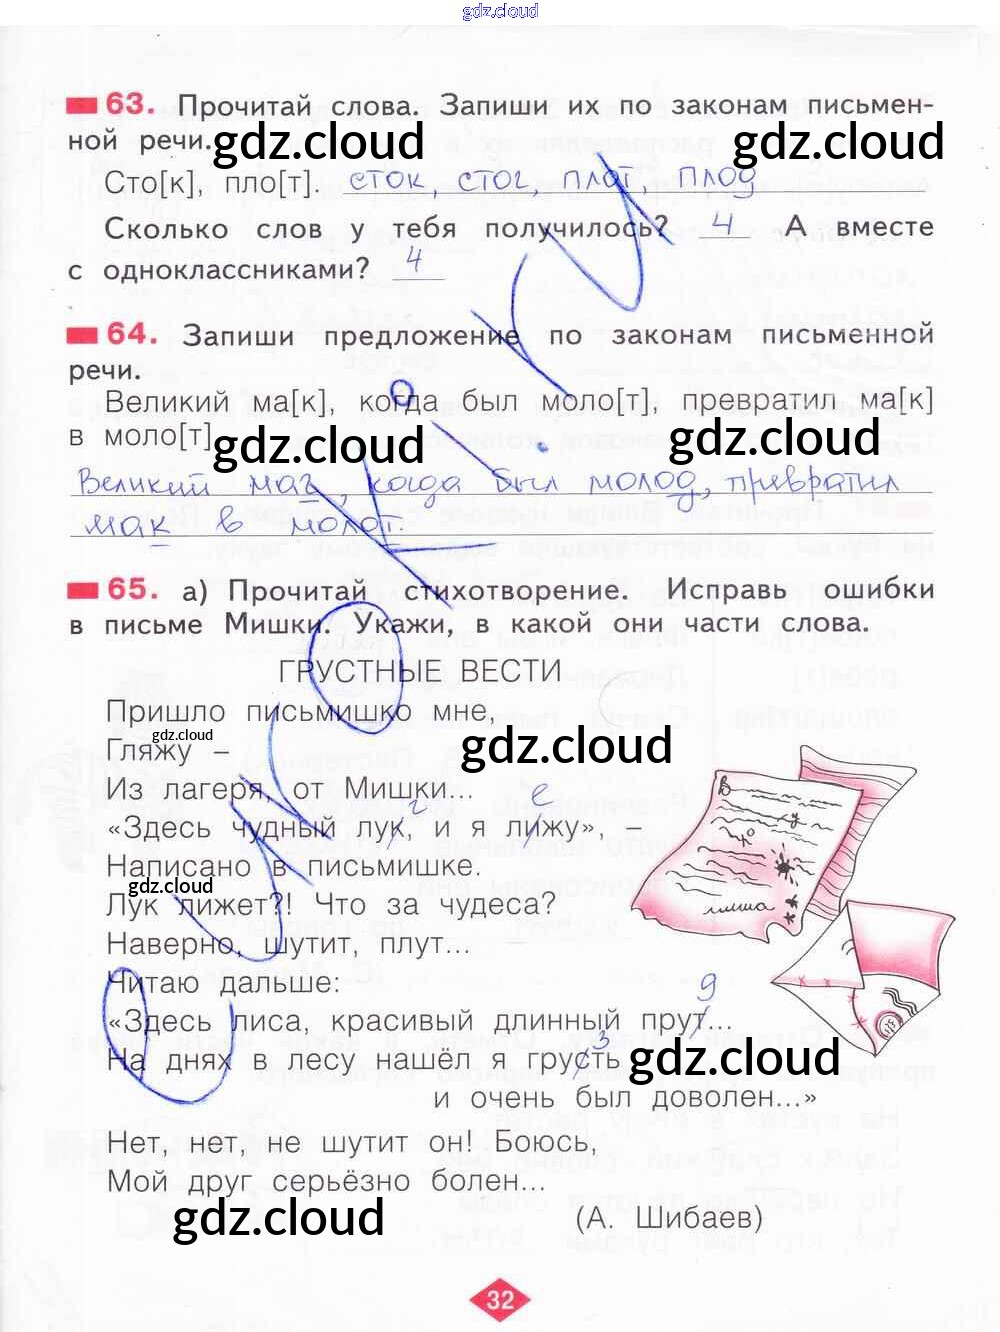 gdz.cloud
63. Прочитай слова. Запиши их по законам письмен-
ной речи.
gdz.cloud gdz.cloud
Сто[к], пло[т]. сток стог, плот, плод
Сколько слов у тебя получилось? 4 А вместе
с одноклассниками? 4
64. Запиши предложение по законам письменной
речи.
Великий ма[к], когда был моло[т], превратил ма[к]
в моло[т]
gdz.cloud gdz.cloud
Великий маг, когда был молод, превратил
мак в молот.
65. а) Прочитай стихотворение. Исправь ошибки
в письме Мишки. Укажи, в какой они части слова.
ГРУСТНЫЕ ВЕСТИ
Пришло письмишко мне,
Гляжу –
gdz.cloud gdz.cloud
Из лагеря, от Мишки...
г е
«Здесь чудный лук, и я лижу», –
Написано в письмишке.
gdz.cloud
Лук лижет?! Что за чудеса?
Наверно, шутит, плут...
Читаю дальше:
д
«Здесь лиса, красивый длинный прут...
з
На днях в лесу нашёл я грусть
gdz.cloud
и очень был доволен...»
Нет, нет, не шутит он! Боюсь,
Мой друг серьёзно болен...
gdz.cloud
(А. Шибаев)
миша
32